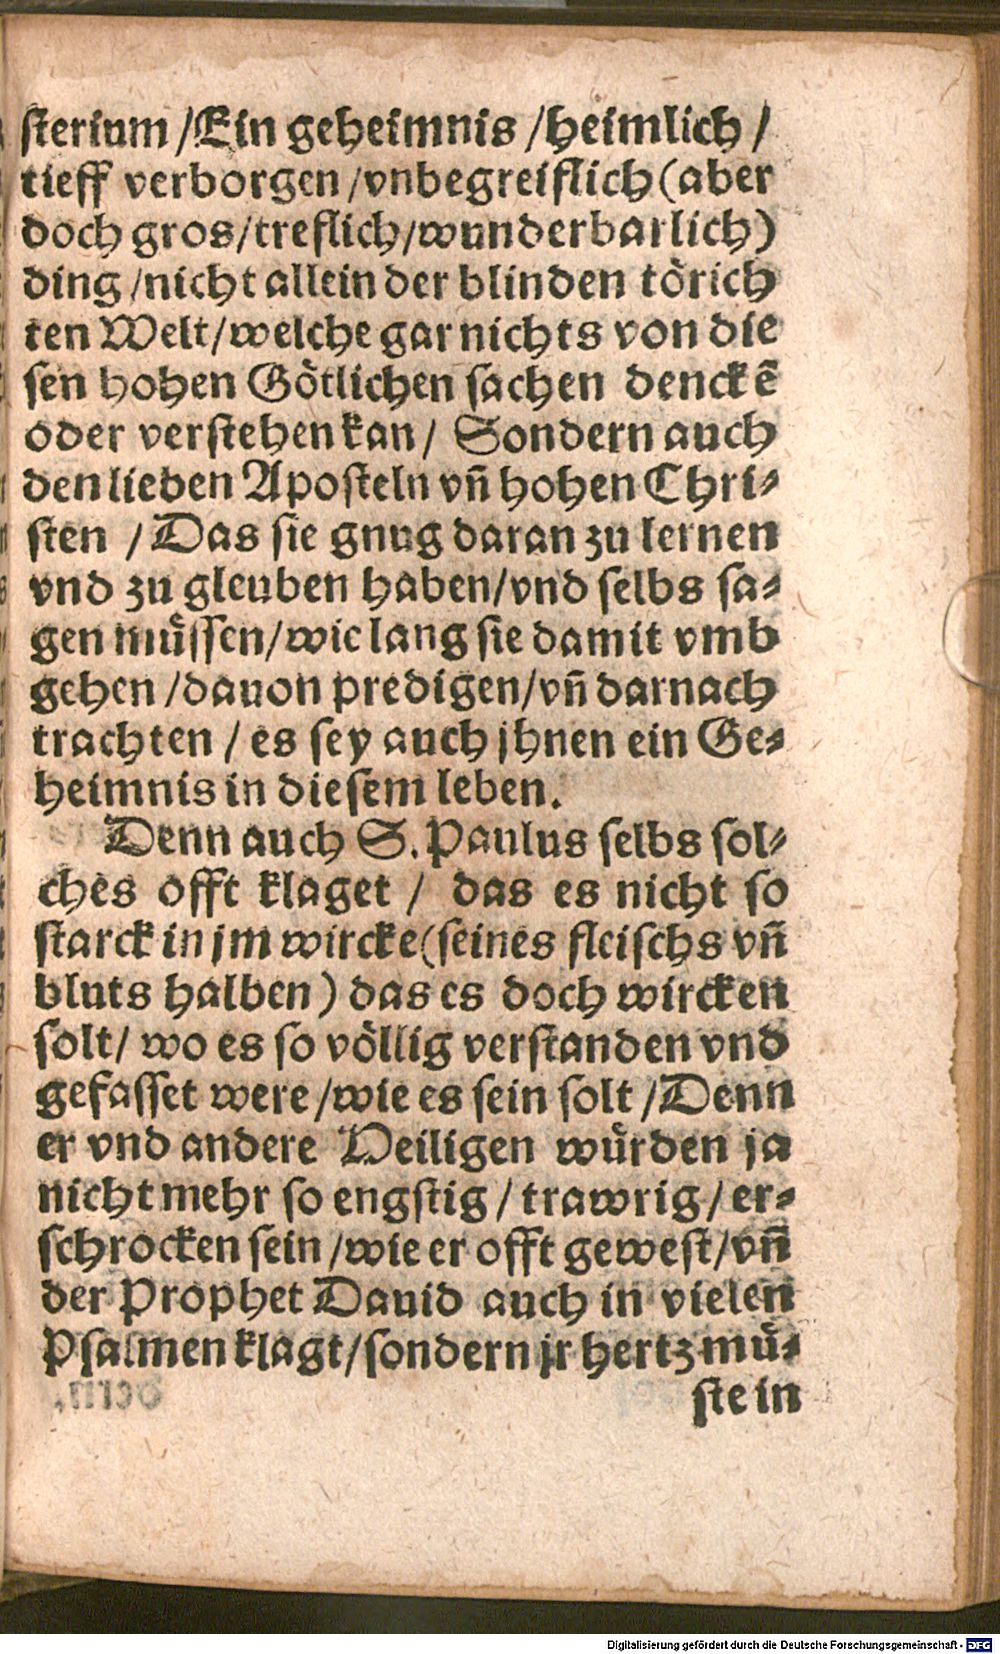 sterium /Ein geheimnis /heimlich /
tieff verborgen /vnbegreiflich (aber
doch gros/treflich/wunderbarlich)
ding /nicht allein der blinden tôrich
ten Welt/welche gar nichts von die
sen hohen Gôtlichen sachen denckẽ
oder verstehen kan / Sondern auch
den lieben Aposteln vñ hohen Chri⸗
sten / Das sie gnug daran zu lernen
vnd zu gleuben haben/vnd selbs sa⸗
gen můssen/wie lang sie damit vmb
gehen /dauon predigen/vñ darnach
trachten / es sey auch jhnen ein Ge⸗
heimnis in diesem leben.
Denn auch S. Paulus selbs sol⸗
ches offt klaget / das es nicht so
starck in jm wircke (seines fleischs vñ
bluts halben) das es doch wircken
solt/ wo es so vôllig verstanden vnd
gefasset were /wie es sein solt /Denn
er vnd andere Heiligen wůrden ja
nicht mehr so engstig / trawrig / er⸗
schrocken sein /wie er offt gewest/vñ
der Prophet Dauid auch in vielen
Psalmen klagt/sondern jr hertz mů⸗
ste in
Digitalisierung gefördert durch die Deutsche Forschungsgemeinschaft - DFG